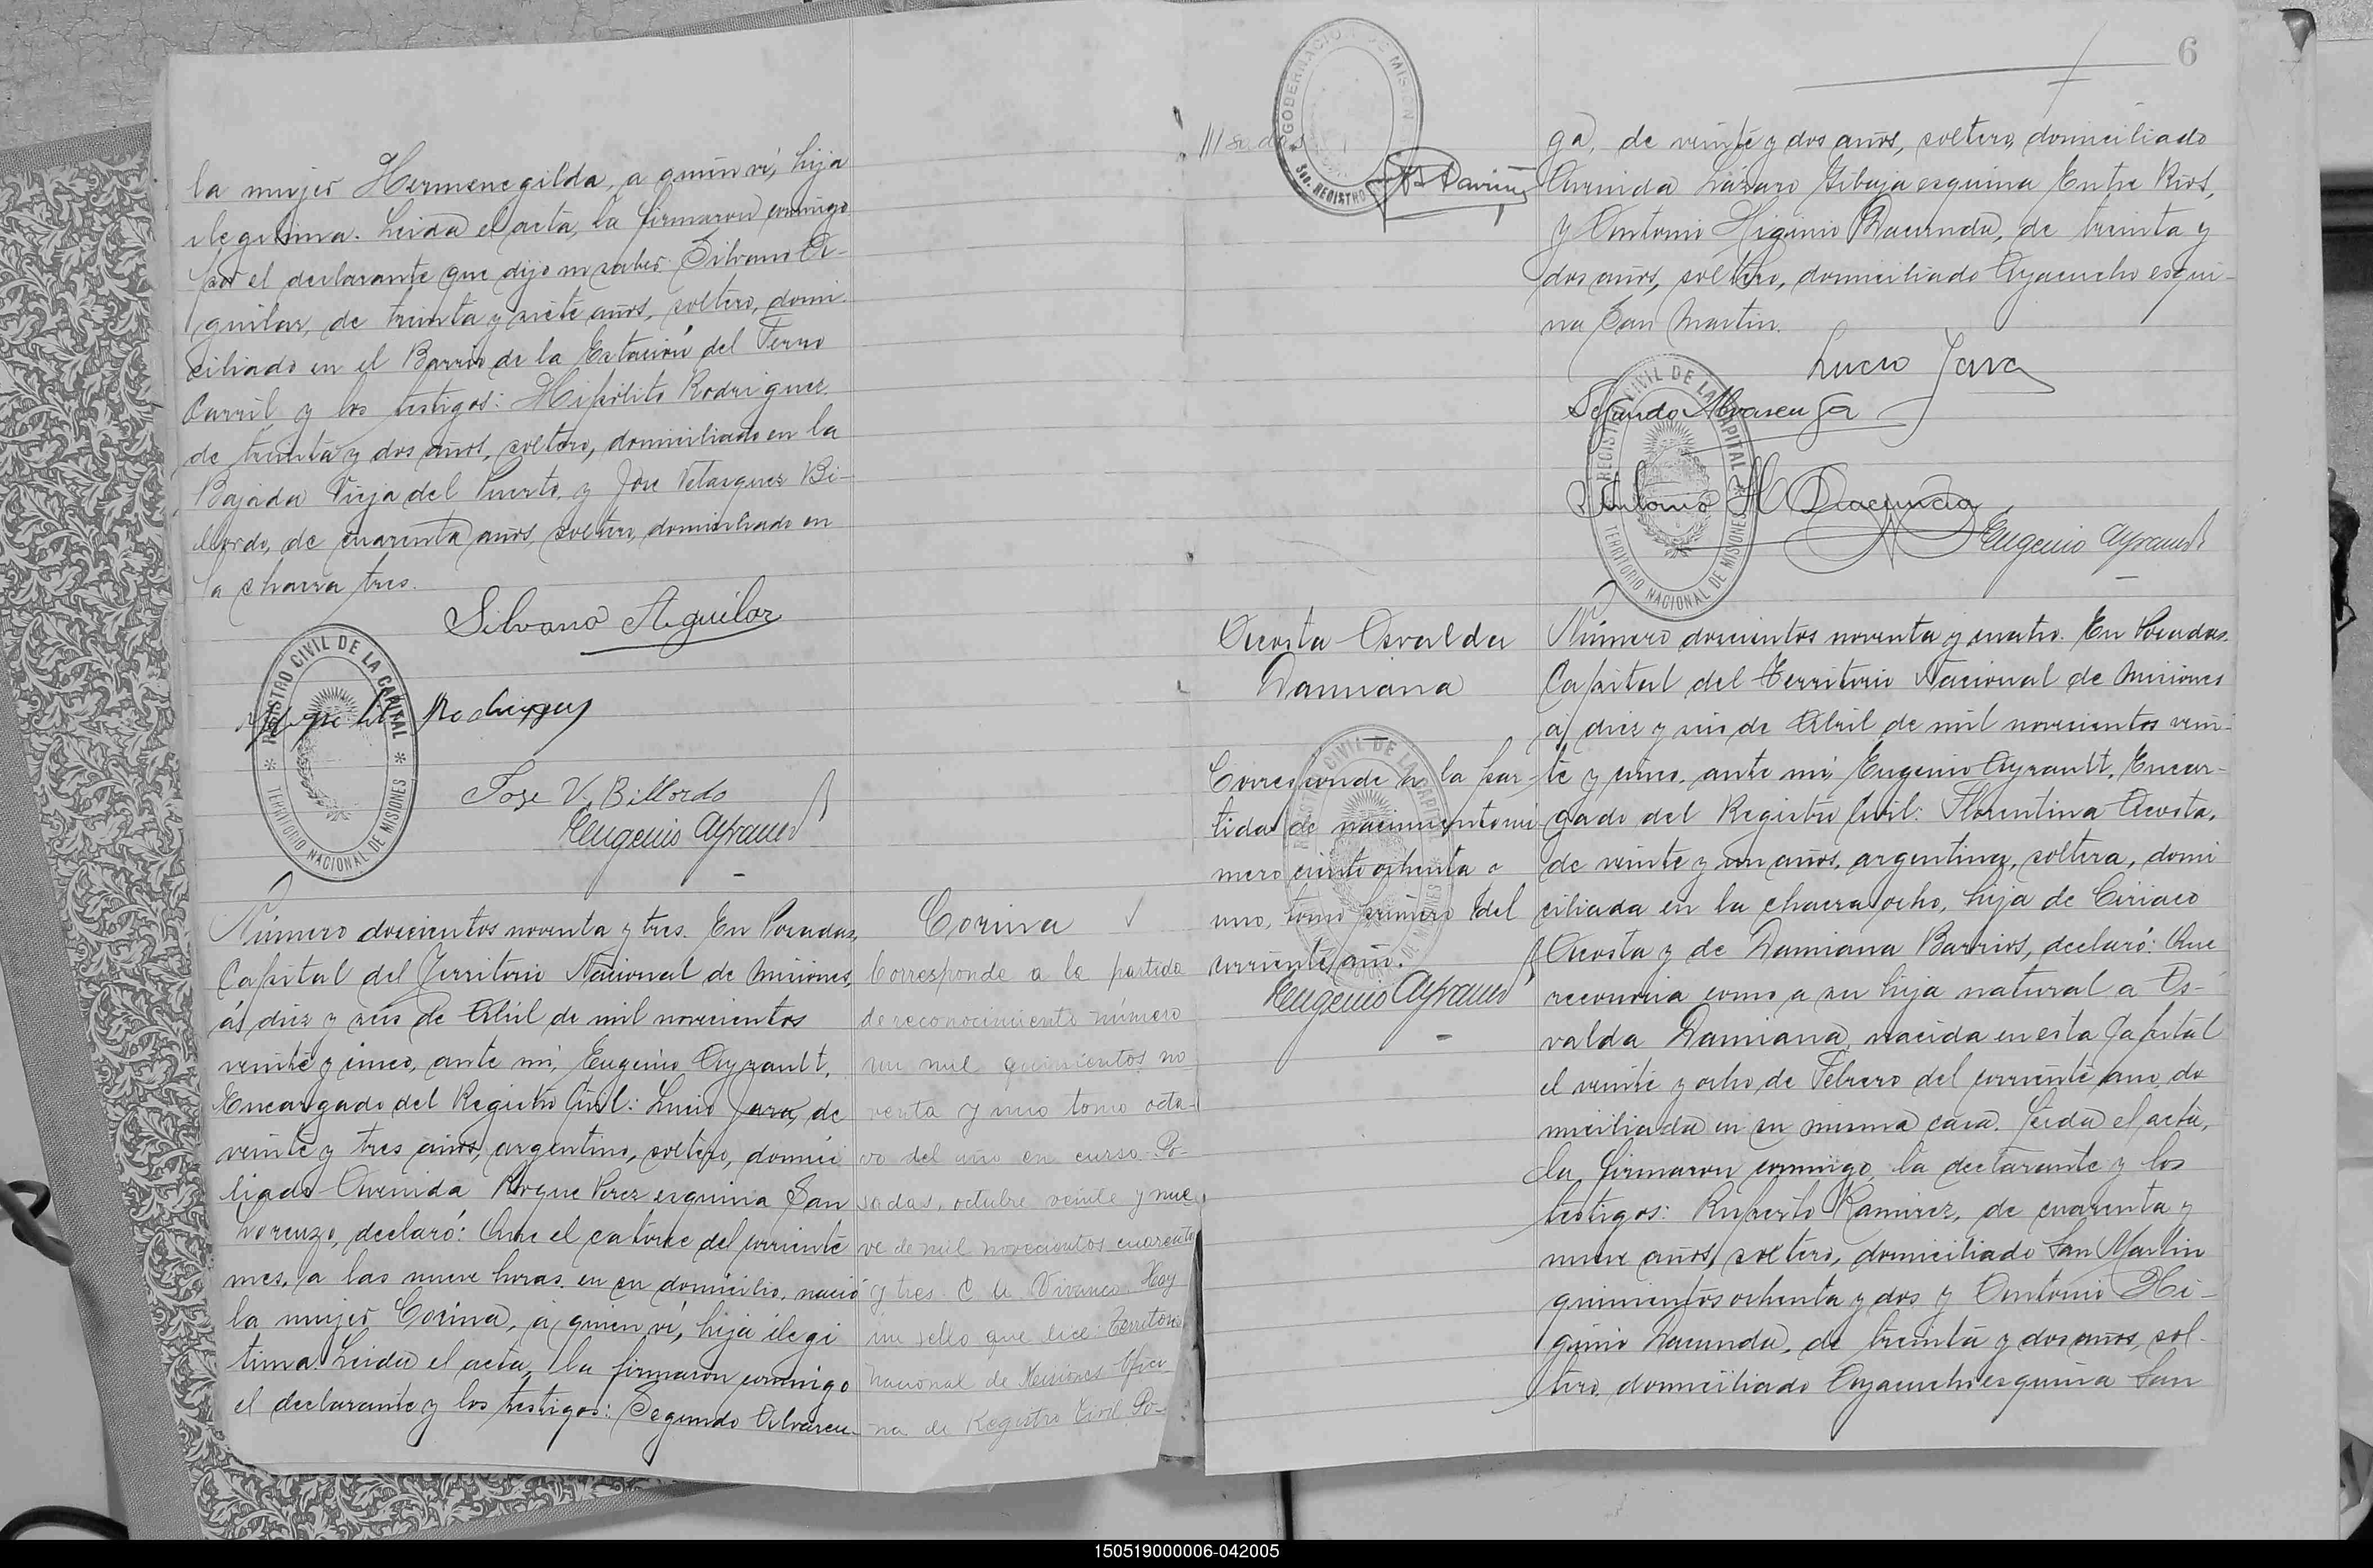 la mujer Hermenegilda, a quien ví, hija
ilegitima. Leida el acta, la firmaron conmigo
por el declarante que dijo no saber Silvano A-
guilar, de treinta y siete años, soltero, domi-
ciliado en el Barrio de la Estación del Ferro
Carril y los testigos: Hipólito Rodriguez
de treinta y dos años, soltero, domiciliado en la
Bajada Vieja del Puerto, y Jose Velasquez Bi-
llordo, de cuarenta años, soltero, domiciliado en
la chacra tres.
Silvano Aguilar
REGISTRO CIVIL DE LA CAPITAL
TERRITORIO NACIONAL DE MISIONES
Rodriguez
Jose V. Billordo
Eugenio Ayrault
Número doscientos noventa y tres. En Posadas,
Capital del Territorio Nacional de Misiones,
á diez y seis de Abril de mil novecientos
veinte y cinco, ante mi, Eugenio Ayrault,
Encargado del Registro Civil: Lucio Jara, de
veinte y tres años, argentino, soltero, domici
liado Avenida Roque Perez esquina San
Lorenzo, declaró: Que el catorce del corriente
mes, a las nueve horas en su domicilio, nació
la mujer Corina, a quien ví, hija ilegi
tima. Leida el acta, la firmaron conmigo
el declarante y los testigos: Segundo Alvaren-
Corina
Corresponde a la partida
de reconocimiento número
un mil quinientos no
venta y uno tomo octa-
vo del año en curso. Po-
sadas, octubre veinte y nue
ve de mil novecientos cuarenta
y tres. C de Vivanco. Hay
un sello que dice: Territorio
Nacional de Misiones Ofici
na de Registro Civil Po-
6
///sadas
GOBERNACION DE MISIONES
Sec. REGISTRO
ga, de veinte y dos años, soltero, domiciliado
Avenida Lázaro Gibaja esquina Entre Rios,
y Antonio Higinio Dacunda, de treinta y
dos años, soltero, domiciliado Ayacucho esqui-
na San Martin.
Lucio Jara
Segundo Alvarenga
Antonio H Dacunda
REGISTRO CIVIL DE LA CAPITAL
TERRITORIO NACIONAL DE MISIONES
Eugenio Ayrault
Acosta Osvalda
Damiana
Corresponde a la par-
tida de nacimiento nú
mero ciento ochenta
uno, tomo primero del
corriente año.
Eugenio Ayrault
Número doscientos noventa y cuatro. En Posadas,
Capital del Territorio Nacional de Misiones
á diez y seis de Abril de mil novecientos vein-
te y cinco, ante mi, Eugenio Ayrault, Encar-
gado del Registro Civil: Florentina Acosta,
de veinte y un años, argentina, soltera, domi
ciliada en la chacra ocho, hija de Ciriaco
Acosta y de Damiana Barrios, declaró: Que
reconocia como a su hija natural a Os-
valda Damiana, nacida en esta Capital
el veinte y ocho de Febrero del corriente año, do
miciliada en su misma casa. Leida el acta,
la firmaron conmigo, la declarante y los
testigos: Ruperto Ramirez, de cuarenta y
nueve años, soltero, domiciliado San Martin
quinientos ochenta y dos y Antonio Hi-
ginio Dacunda, de treinta y dos años, sol-
tero, domiciliado Ayacucho esquina San
150519000006-042005